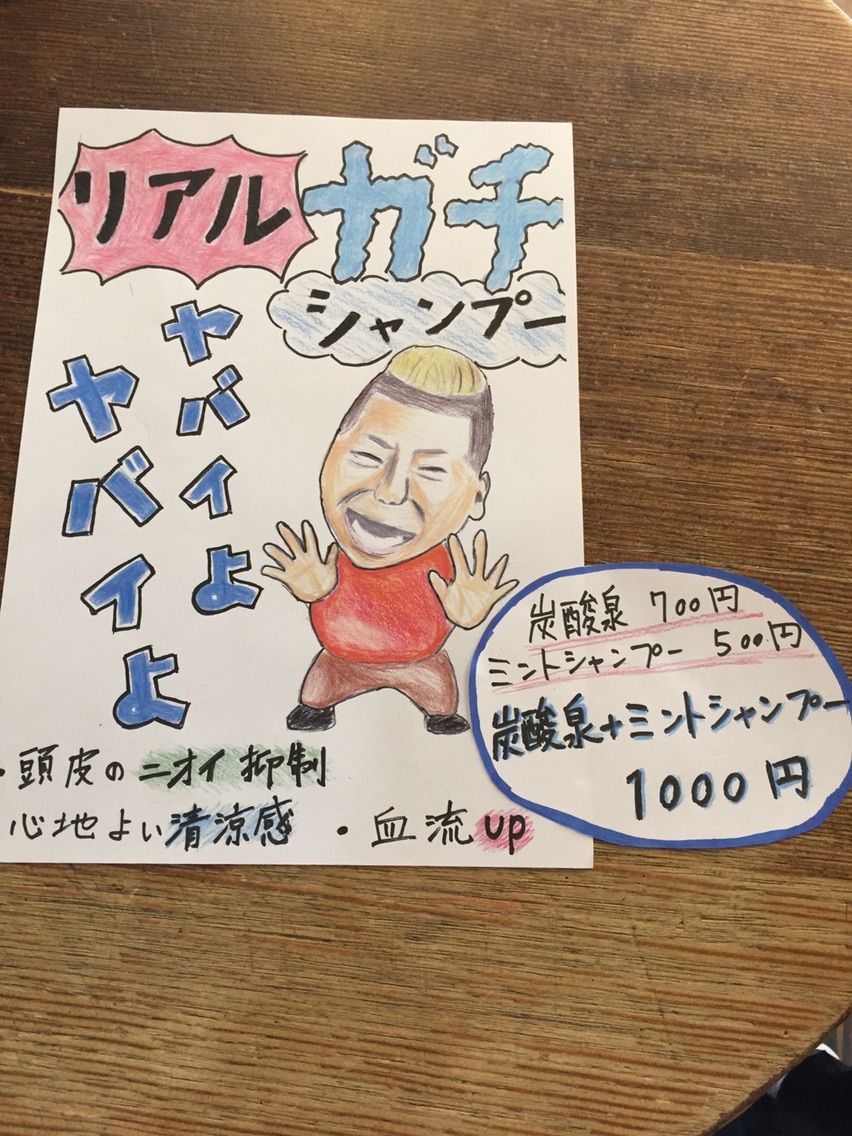 リアル
ガチ
シャンプー
ヤバイよ
ヤバイよ
・頭皮のニオイ抑制
心地よい清涼感 ・血流up
炭酸泉 700円
ミントシャンプー 500円
炭酸泉+ミントシャンプー
1000円